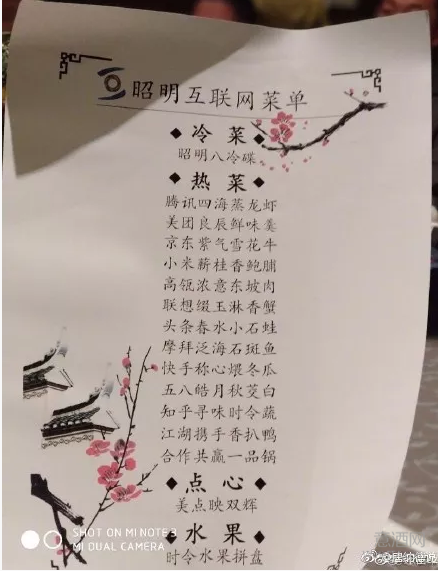 昭明互联网菜单
◆冷菜◆
昭明八冷碟
◆热菜◆
腾讯四海蒸龙虾
美团良辰鲜味羹
京东紫气雪花牛
小米薪桂香鲍脯
高瓴浓意东坡肉
联想缀玉淋香蟹
头条春水小石蛙
摩拜泛海石斑鱼
快手称心煨冬瓜
五八皓月秋茭白
知乎寻味时令蔬
江湖携手香扒鸭
合作共赢一品锅
◆点心◆
美点映双辉
◆水果◆
时令水果拼盘
SHOT ON MI NOTE 3
MI DUAL CAMERA